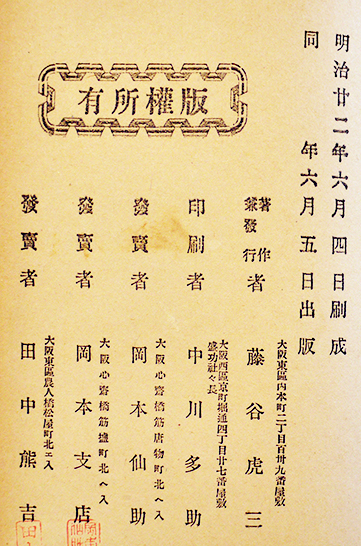 明治廿二年六月四日刷成
同 年六月五日出版
版權所有
大阪東區內本町二丁目百卅九番屋敷
著作兼發行者 藤谷虎三
大阪西區京町堀通四丁目廿七番屋敷
盛功社々長
印刷者 中川多助
大阪心齋橋筋唐物町北ヘ入
發賣者 岡本仙助
大阪心齋橋筋 町北ヘ入
發賣者 岡本支店
大阪東區農人橋松屋町北エ入
發賣者 田中熊吉